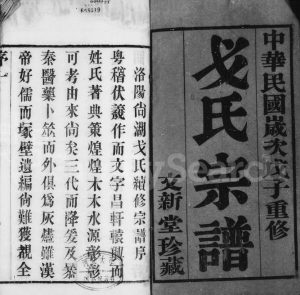 中華民國歲次戊子重修
戈氏宗譜
文新堂珍藏
洛陽尙湖戈氏續修宗譜序
粤稽伏羲作而文字昌軒轅興而
姓氏著典策煌煌木本水源彰彰
可考由來尙矣三代而降爰及暴
秦醫藥卜筮而外俱爲灰燼雖漢
帝好儒而冢壁遺編尙難獲觀全
序一